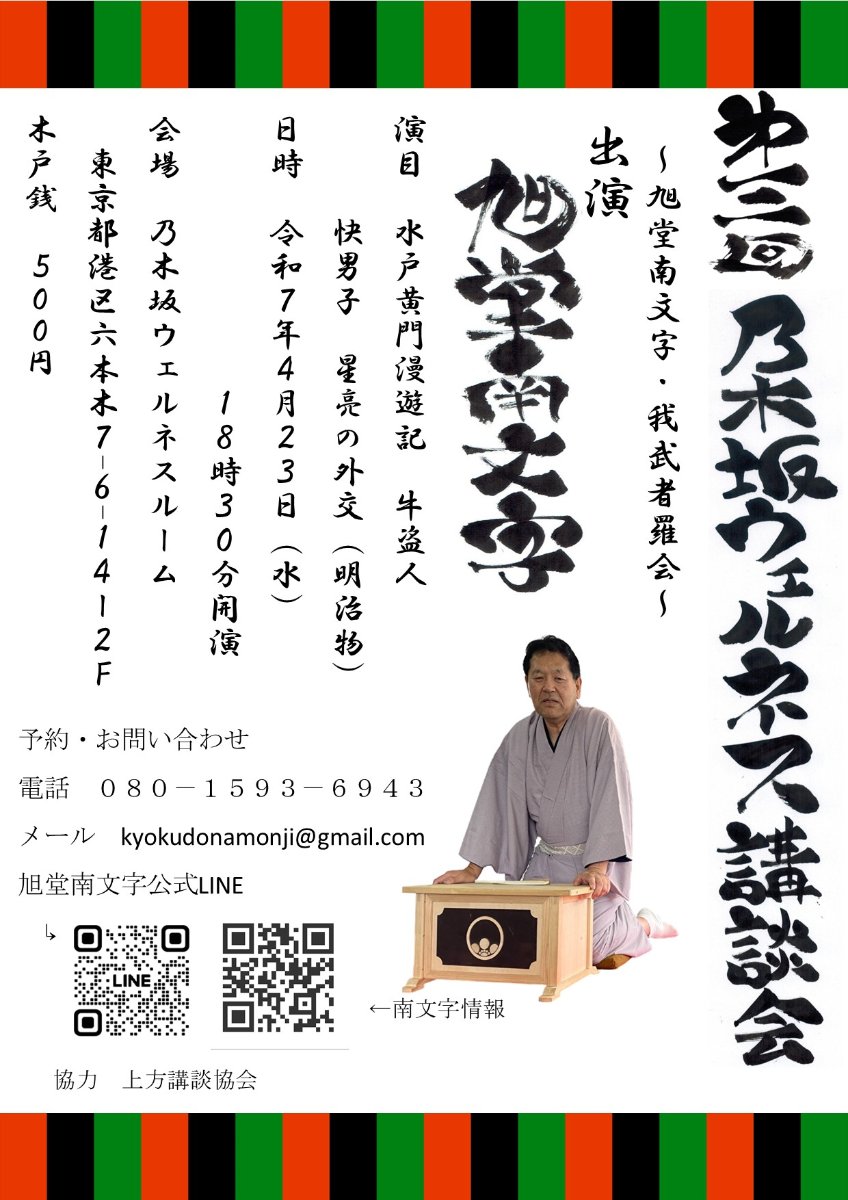 第三回 乃木坂ウェルネス講談会
～旭堂南文字・我武者羅会～
出演
旭堂南文字
演目 水戸黄門漫遊記 牛盗人
快男子 星亮の外交（明治物）
日時 令和7年4月23日（水）
18時30分開演
会場 乃木坂ウェルネスルーム
東京都港区六本木7-6-14-2F
木戸銭 500円
予約・お問い合わせ
電話 ０８０－１５９３－６９４３
メール kyokudonamonji@gmail.com
旭堂南文字公式LINE
↳
LINE
←南文字情報
協力 上方講談協会